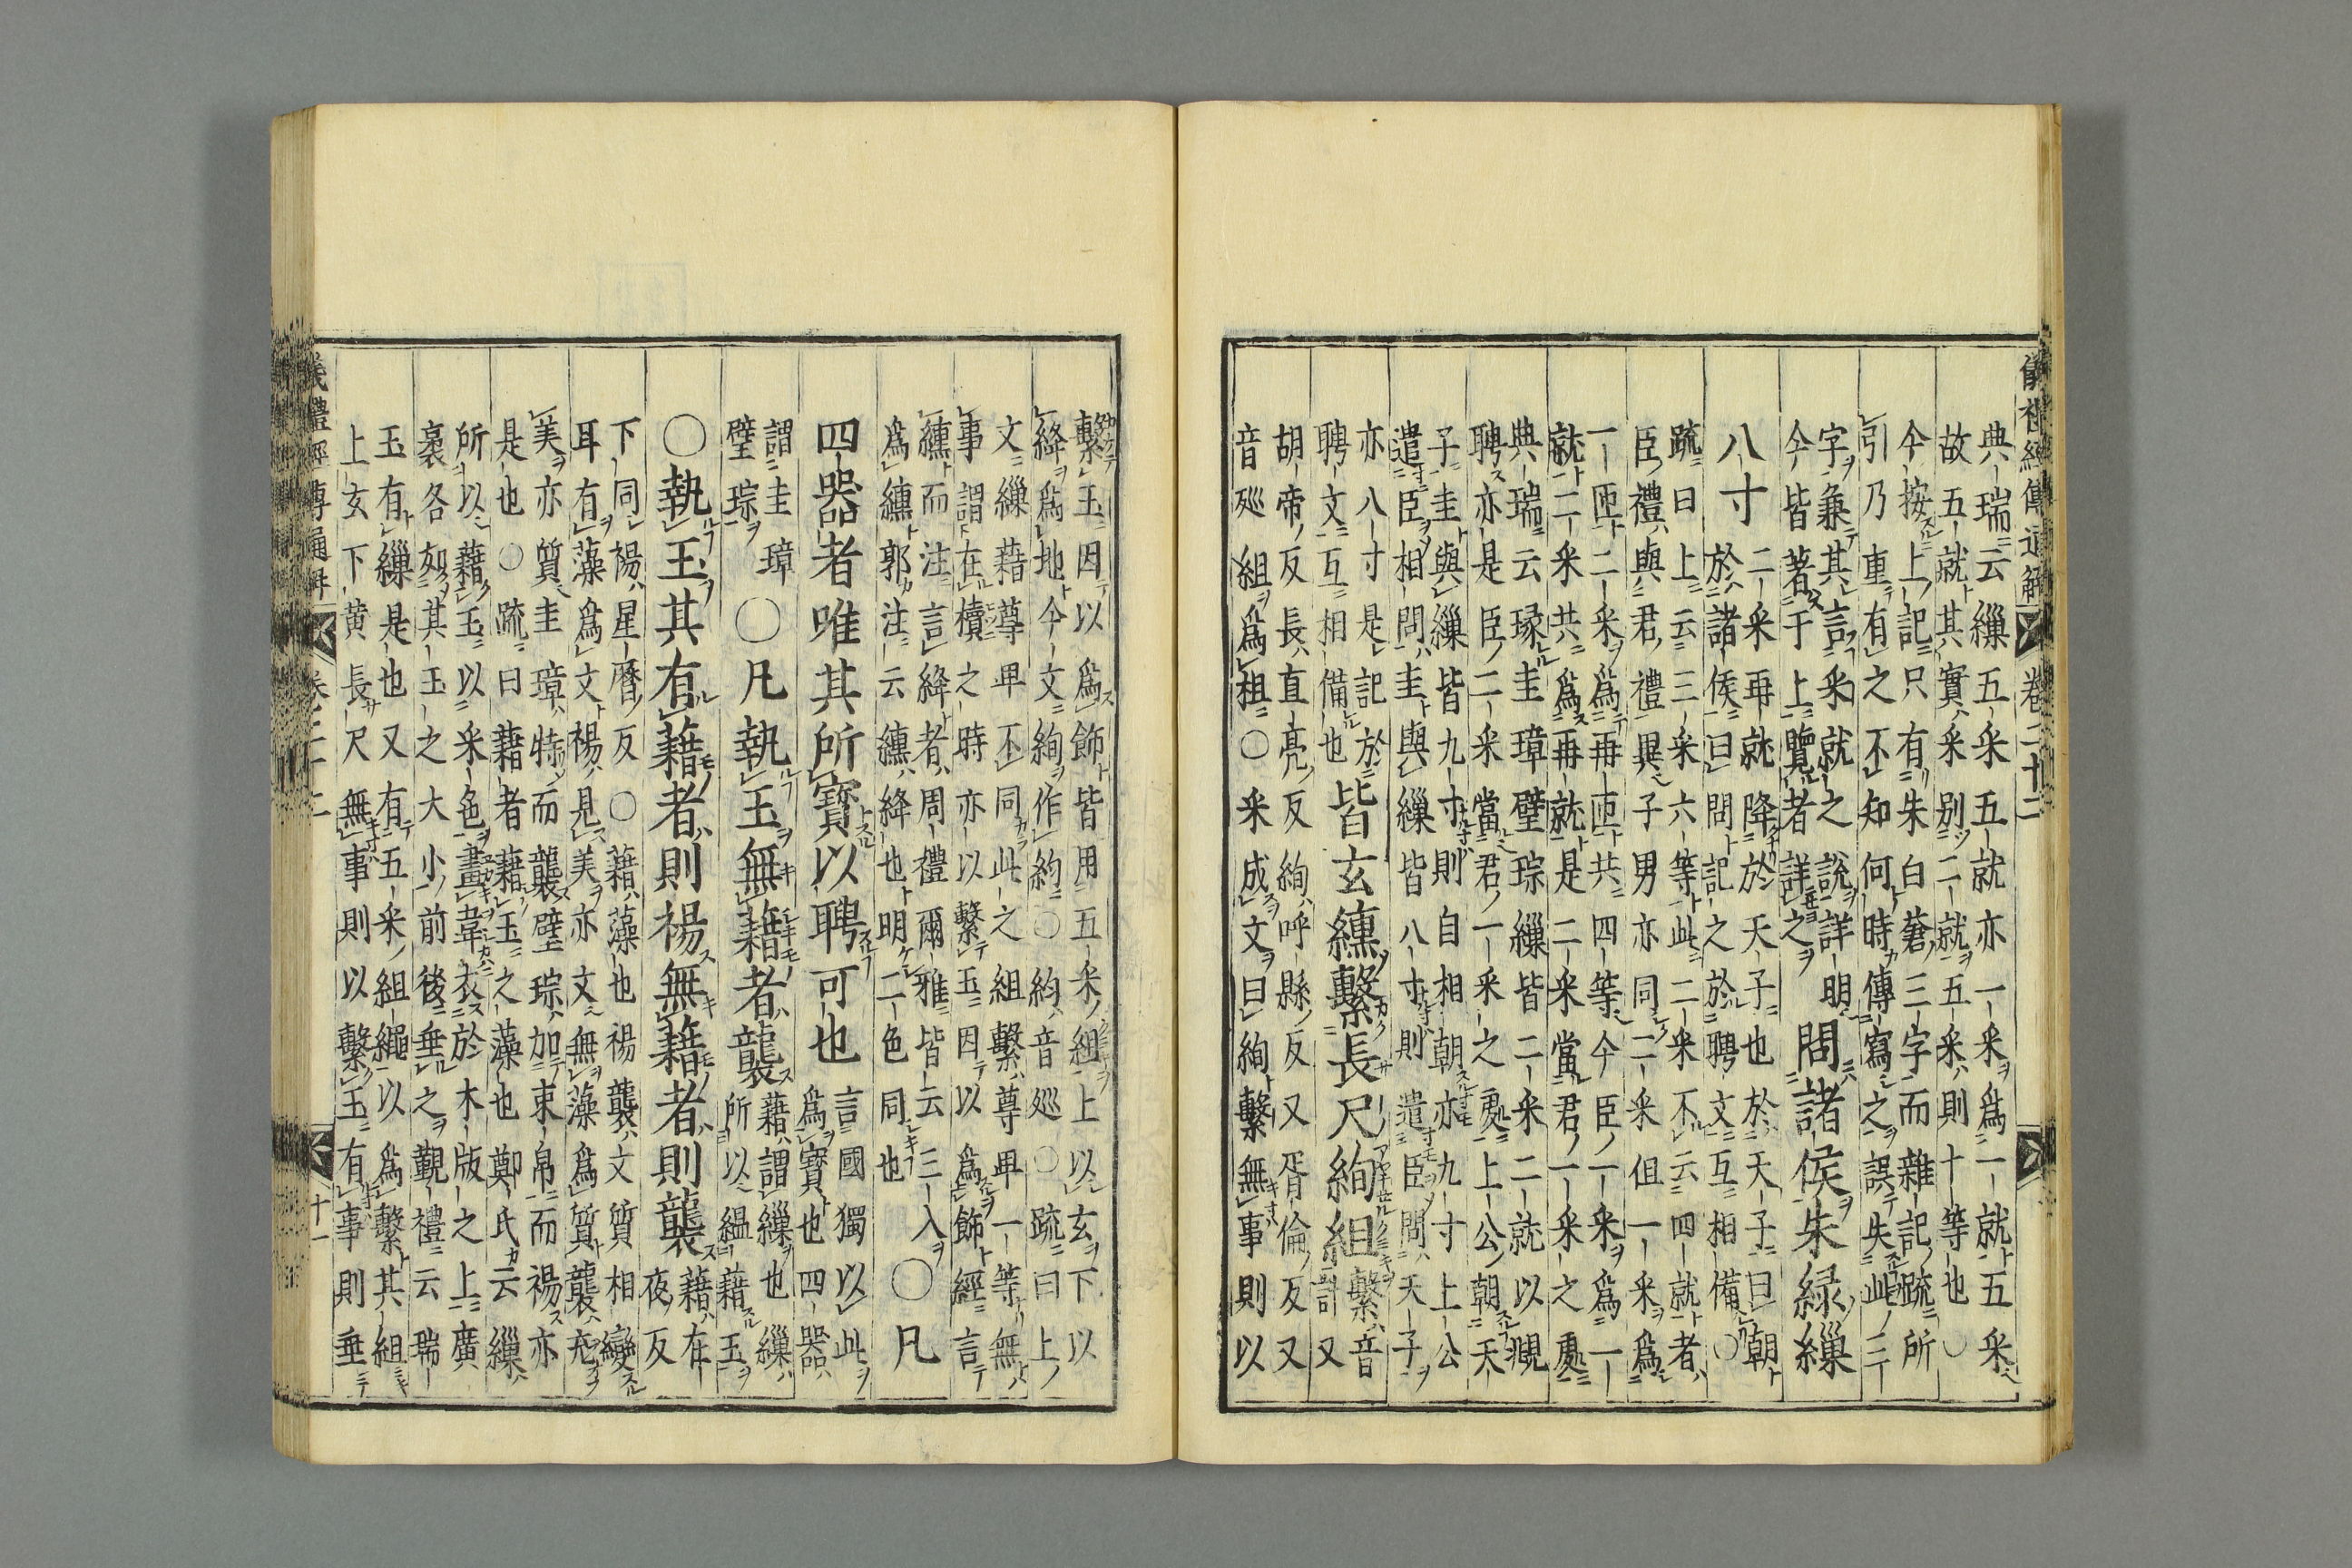 儀禮經傳通解 卷二十二
典瑞云繅五采五就亦一采爲一就五采
故五就其實采別二就五采則十等也○
今按上記只有朱白蒼三字而雜記疏所
引乃重有之不知何時傳寫之誤失此二
字兼其言采就之說詳明
今皆著于上覽者詳之
問諸侯朱緑繅
八寸
二采再就降於天子也於天子曰朝
於諸侯曰問記之於聘文互相備○
疏曰上云三采六等此二采不云四就者
臣禮與君禮異子男亦同二采但一采爲
一匝二采爲再匝共四等今臣一采爲一
就二采共爲再就是二采當君一采之處
典瑞云瑑圭璋璧琮繅皆二采二就以覜
聘亦是臣二采當君一采之處上公朝天
子圭與繅皆九寸則自相朝亦九寸上公
遣臣相問圭與繅皆八寸則遣臣問天子
亦八寸是記於
聘文互相備也
皆玄纁繫長尺絢組
繫音
計又
胡帝反長直亮反絢呼縣反又胥倫反又
音廵組爲祖○采成文曰絢繫無事則以
繫玉因以爲飾皆用五采組上以玄下以
絳爲地今文絢作約○約音廵○疏曰上
文繅藉尊卑不同此之組繫尊卑一等無
事謂在櫝之時亦以繫玉因以爲飾經言
纁而注言絳者周禮爾雅皆云三入
爲纁郭注云纁絳也明二色同也
○凡
四器者唯其所寶以聘可也
言國獨以此
爲寶也四器
謂圭璋
璧琮
○凡執玉無藉者襲
藉謂繅也繅
所以縕藉玉
○執玉其有藉者則裼無藉者則襲
藉在
夜反
下同裼星曆反○藉藻也裼襲文質相變
耳有藻爲文裼見美亦文無藻爲質襲充
美亦質圭璋特而襲璧琮加束帛而裼亦
是也○疏曰藉者藉玉之藻也鄭氏云繅
所以藉玉以采色畫韋衣於木版之上廣
袤各如其玉之大小前後垂之覲禮云瑞
玉有繅是也又有五采組繩以爲繫其組
上玄下黄長尺無事則以繫玉有事則垂
儀禮經傳通解 卷二十二 十一